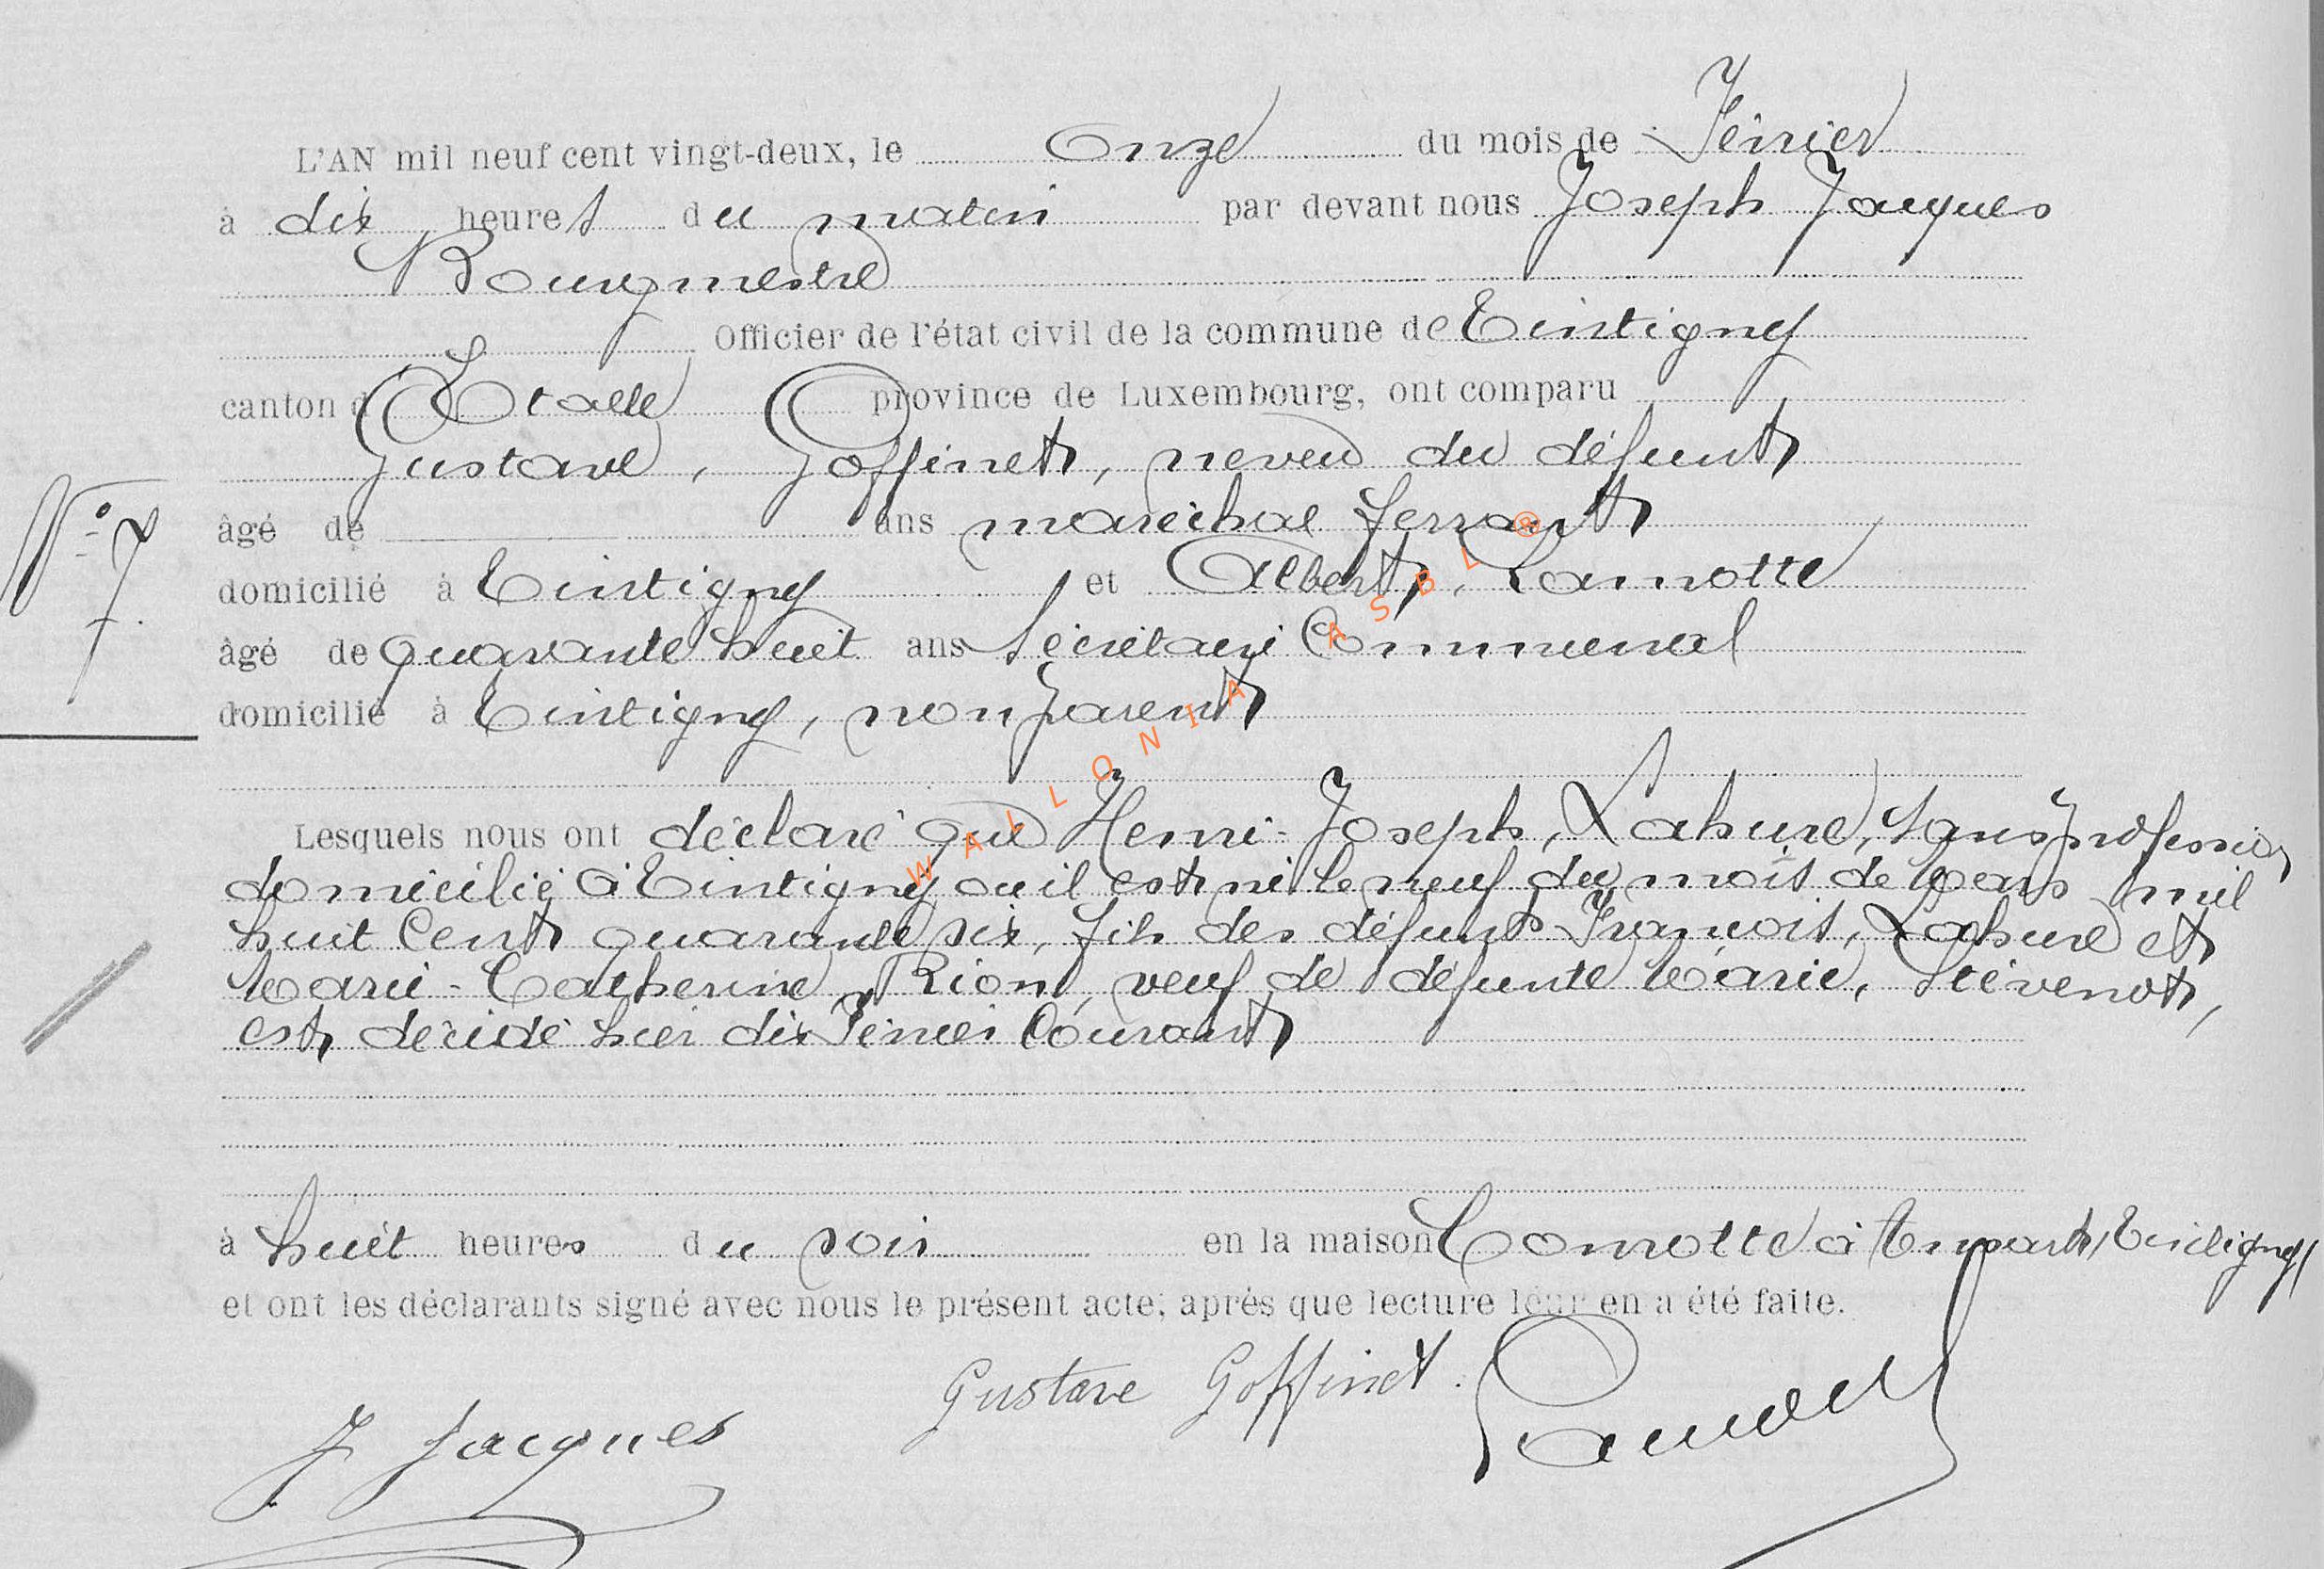 L'AN mil neuf cent vingt-deux, le Onze du mois de Février
à dix heures du matin par devant nous Joseph Jacques
Bourgmestre
Officier de l'état civil de la commune de Tintigny
canton d'Etalle province de Luxembourg, ont comparu
Gustave, Goffinet, neveu du défunt
N° 7
âgé de ans maréchal ferrant
domicilié à Tintigny et Albert, Lamotte
âgé de quarante huit ans Secrétaire Communal
domicilié à Tintigny, non parent
Lesquels nous ont déclaré que Henri-Joseph, Lahure, sans profession
domicilié à Tintigny où il est né le neuf du mois de Mars mil
huit cent quarante six, fils des défunts François, Lahure et
Marie-Catherine Rion, veuf de défunte Marie, Stévenot,
est décédé hier dix Février Courant
à huit heures du soir en la maison Comotte à Ansart, Tintigny
et ont les déclarants signé avec nous le présent acte, après que lecture leur en a été faite.
Gustave Goffinet.
J Jacques
WALLONIA ASBL ®